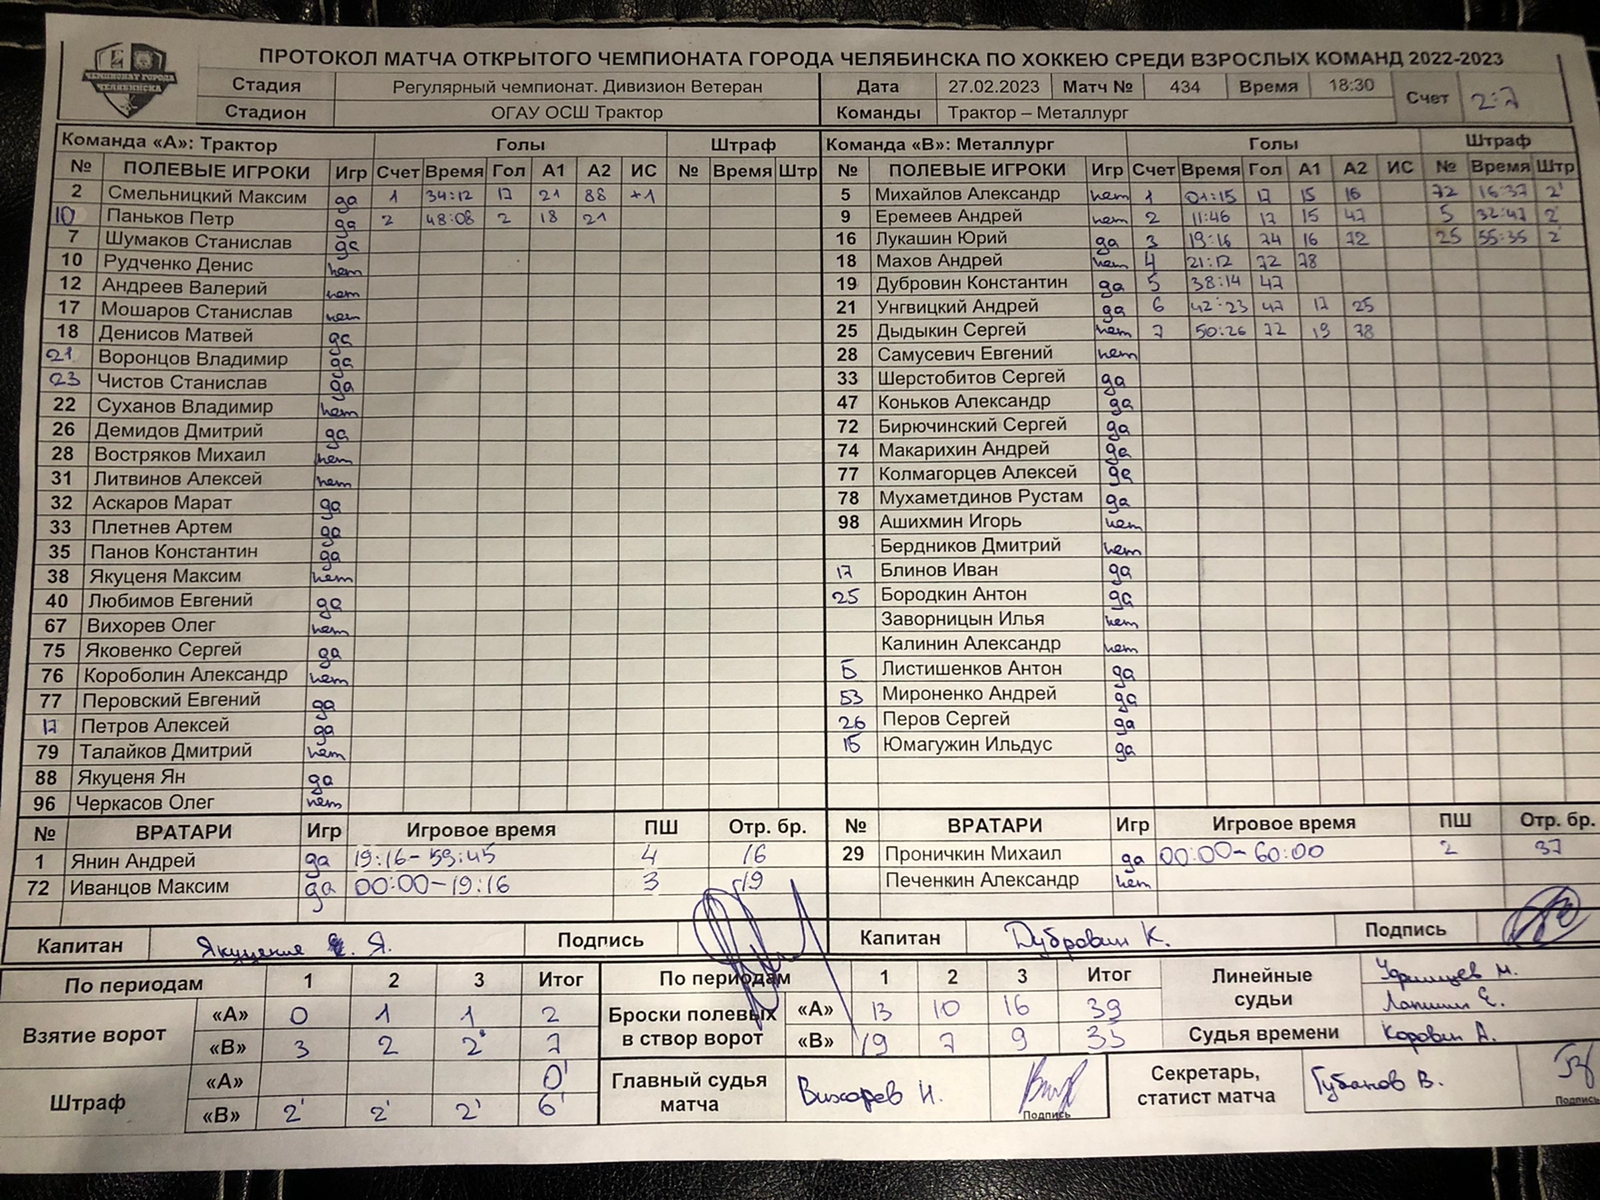 ЧЕМПИОНАТ ГОРОДА
ЧЕЛЯБИНСКА
ПРОТОКОЛ МАТЧА ОТКРЫТОГО ЧЕМПИОНАТА ГОРОДА ЧЕЛЯБИНСКА ПО ХОККЕЮ СРЕДИ ВЗРОСЛЫХ КОМАНД 2022-2023
Стадия Регулярный чемпионат. Дивизион Ветеран Дата 27.02.2023 Матч № 434 Время 18:30 Счет 2:7
Стадион ОГАУ ОСШ Трактор Команды Трактор – Металлург
Команда «А»: Трактор Голы Штраф Команда «В»: Металлург Голы Штраф
№ ПОЛЕВЫЕ ИГРОКИ Игр Счет Время Гол А1 А2 ИС № Время Штр № ПОЛЕВЫЕ ИГРОКИ Игр Счет Время Гол А1 А2 ИС № Время Штр
2 Смельницкий Максим да 1 34:12 17 21 88 +1 5 Михайлов Александр нет 1 01:15 17 15 16 72 16:37 2'
10 Паньков Петр да 2 48:08 2 18 21 9 Еремеев Андрей нет 2 11:46 17 15 47 5 32:47 2'
7 Шумаков Станислав да 16 Лукашин Юрий да 3 19:16 74 16 72 25 55:35 2'
10 Рудченко Денис нет 18 Махов Андрей нет 4 21:12 72 78
12 Андреев Валерий нет 19 Дубровин Константин да 5 38:14 47
17 Мошаров Станислав нет 21 Унгвицкий Андрей да 6 42:23 47 17 25
18 Денисов Матвей да 25 Дыдыкин Сергей нет 7 50:26 72 19 78
21 Воронцов Владимир да 28 Самусевич Евгений нет
23 Чистов Станислав да 33 Шерстобитов Сергей да
22 Суханов Владимир нет 47 Коньков Александр да
26 Демидов Дмитрий да 72 Бирючинский Сергей да
28 Востряков Михаил нет 74 Макарихин Андрей да
31 Литвинов Алексей нет 77 Колмагорцев Алексей да
32 Аскаров Марат да 78 Мухаметдинов Рустам да
33 Плетнев Артем да 98 Ашихмин Игорь нет
35 Панов Константин да Бердников Дмитрий нет
38 Якуценя Максим нет 17 Блинов Иван да
40 Любимов Евгений да 25 Бородкин Антон да
67 Вихорев Олег нет Заворницын Илья нет
75 Яковенко Сергей да Калинин Александр нет
76 Короболин Александр нет 5 Листишенков Антон да
77 Перовский Евгений да 53 Мироненко Андрей да
17 Петров Алексей да 26 Перов Сергей да
79 Талайков Дмитрий нет 15 Юмагужин Ильдус да
88 Якуценя Ян да
96 Черкасов Олег нет
№ ВРАТАРИ Игр Игровое время ПШ Отр. бр. № ВРАТАРИ Игр Игровое время ПШ Отр. бр.
1 Янин Андрей да 19:16-59:45 4 16 29 Проничкин Михаил да 00:00-60:00 2 37
72 Иванцов Максим да 00:00-19:16 3 19 Печенкин Александр нет
Капитан Якуценя Я. Подпись Капитан Дубровин К. Подпись
По периодам 1 2 3 Итог По периодам 1 2 3 Итог Линейные судьи
Взятие ворот «А» 0 1 1 2 Броски полевых в створ ворот «А» 13 10 16 39 Лапшин Е.
«В» 3 2 2 7 «В» 19 7 9 35 Судья времени Коровин А.
Штраф «А» 0' Главный судья матча Вихорев Н. Подпись Секретарь, статист матча Губанов В. Подпись
«В» 2' 2' 2' 6'